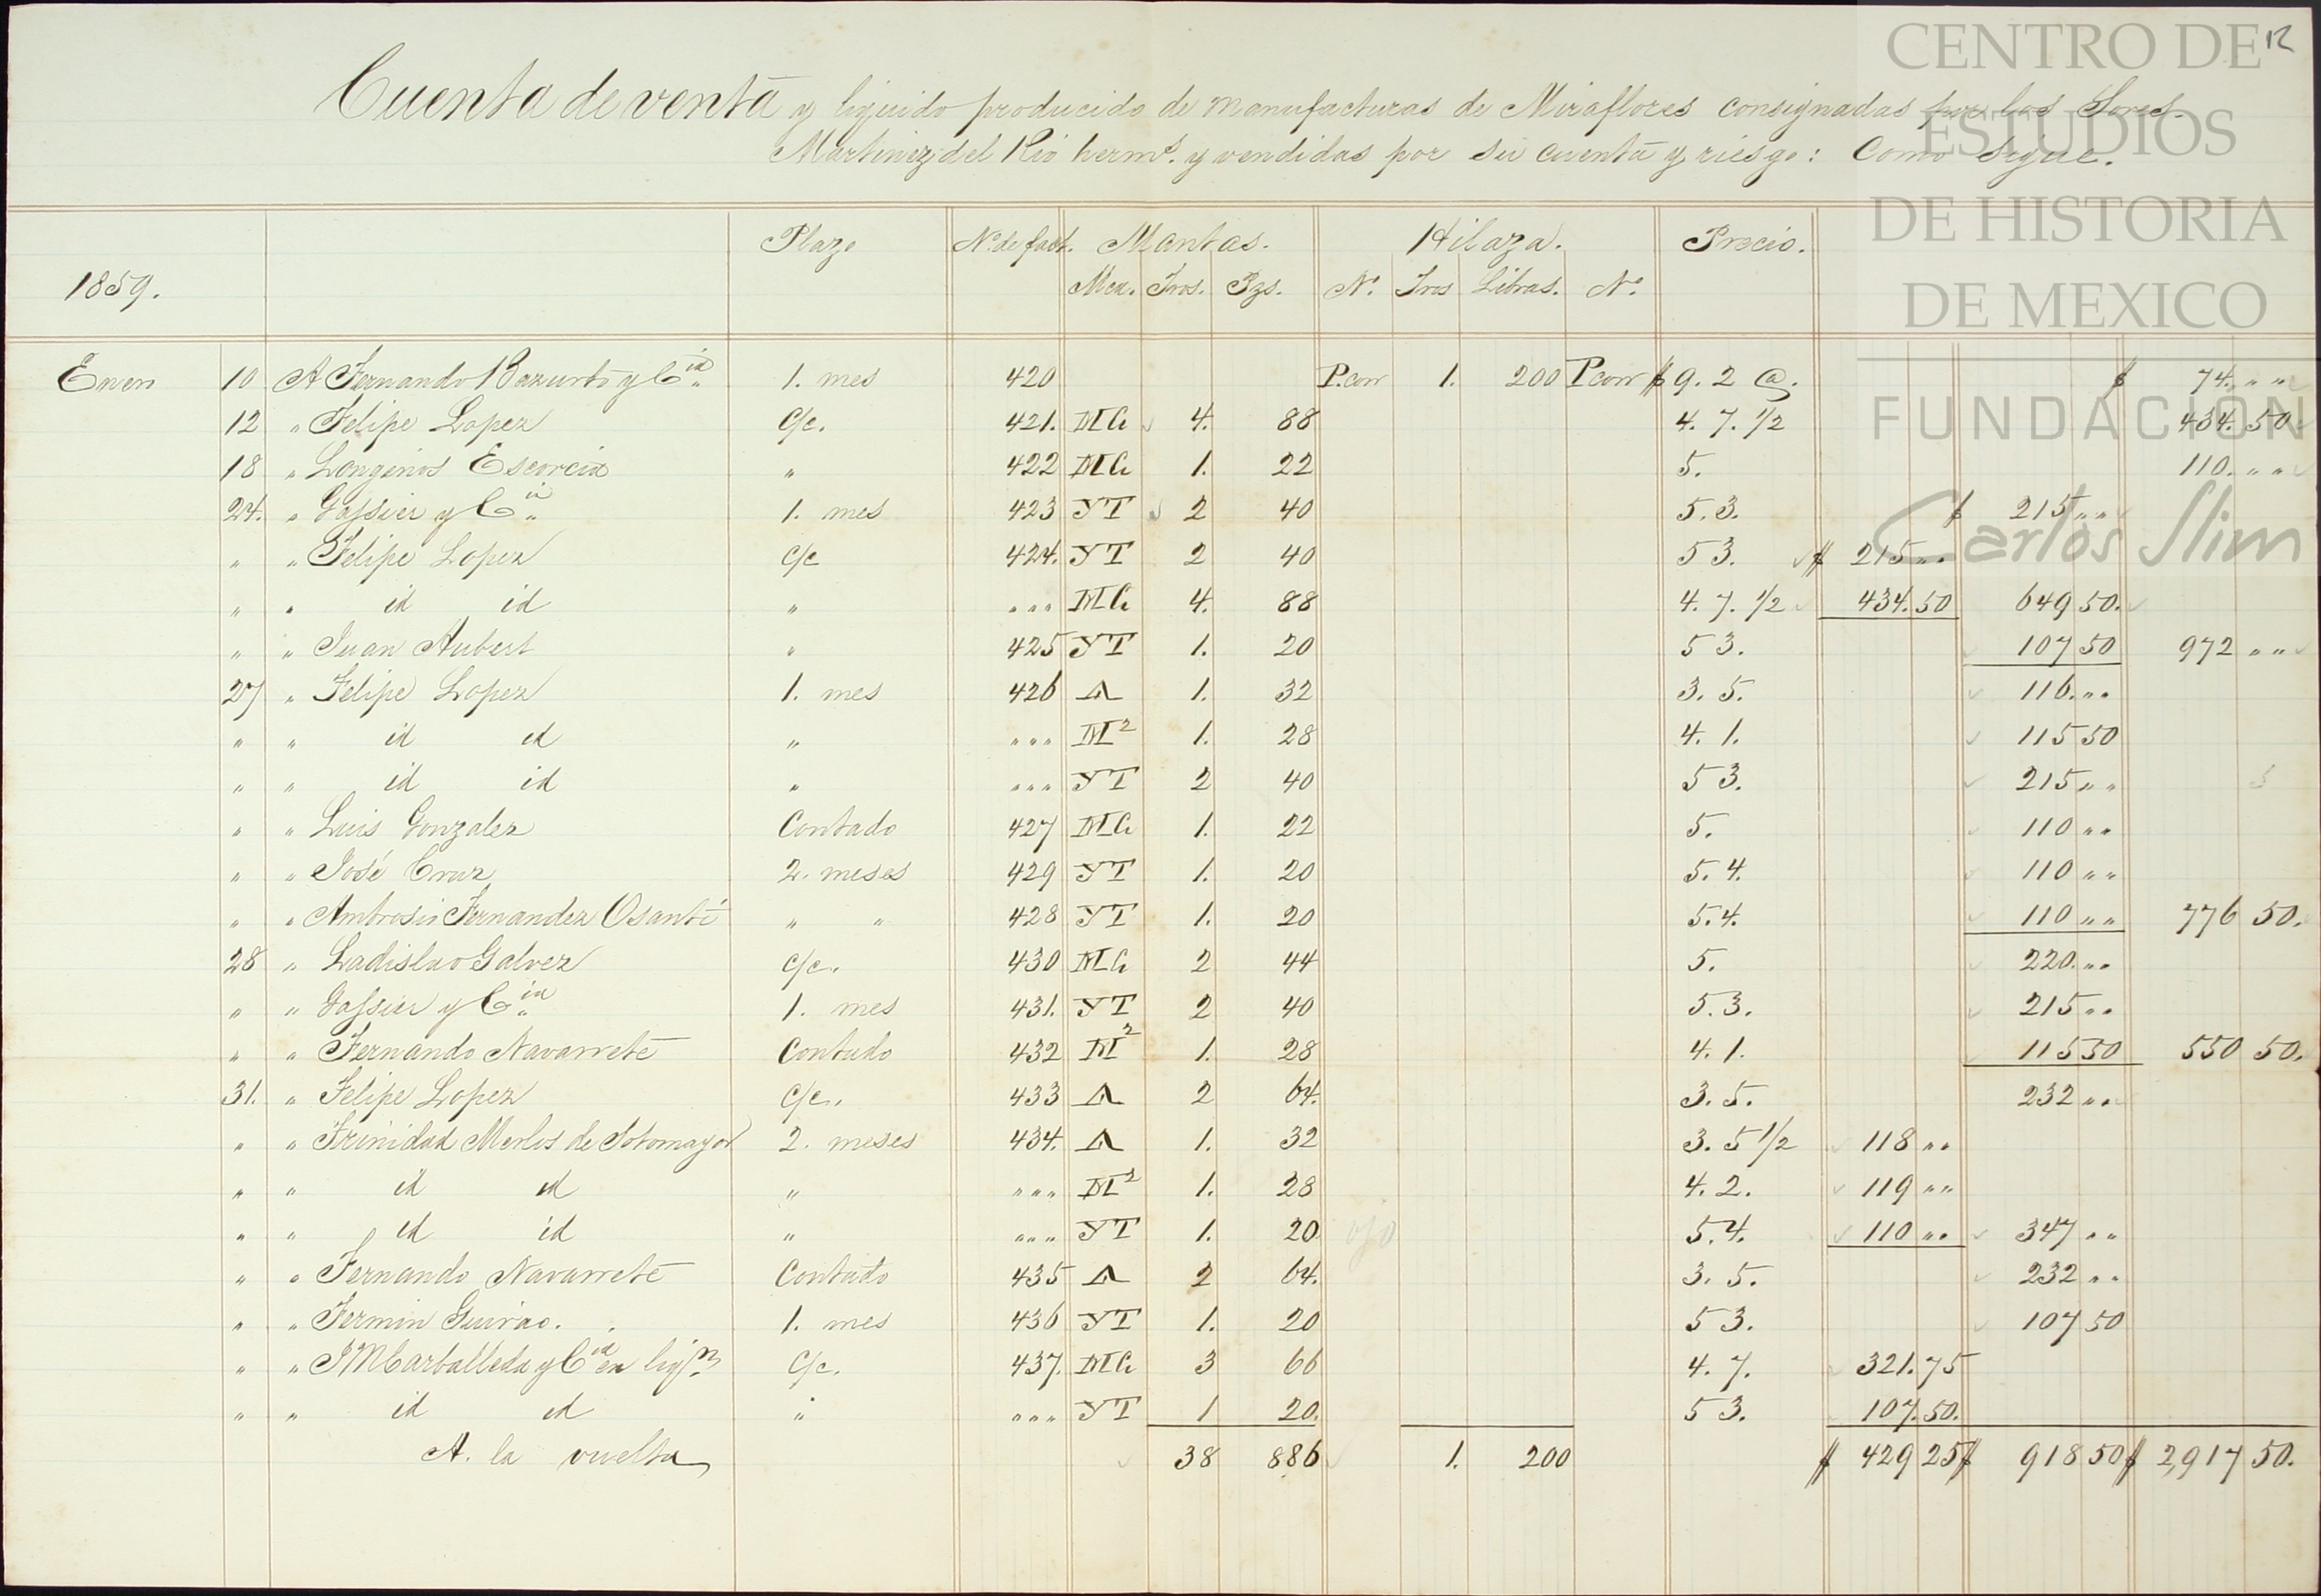 CENTRO DE
ESTUDIOS
DE HISTORIA
DE MEXICO
FUNDACIÓN
Carlos Slim
12
Cuenta de venta y liquido producido de manufacturas de Miraflores consignadas por los Sores.
Martinez del Rio herms. y vendidas por su cuenta y riesgo: Como sigue.
1859. Plazo No. de fact. Mantas. Hilaza. Precio.
Mca. Tros. Pzs. No. Tros Libras. No.
Enero 10 A Fernando Bazurto y Cia. 1. mes 420 P. corr 1. 200 P corr $ 9. 2 @. $ 74. " "
12 " Felipe Lopez C/c. 421. MG 4. 88 4. 7. 1/2 434. 50
18 " Longinos Escorcia " 422 MG 1. 22 5. 110. " "
24. " Gassier y Cia. 1. mes 423 YT 2 40 5. 3. $ 215 " "
" " Felipe Lopez C/c 424. YT 2 40 5 3. $ 215 " "
" " id id " " " " MG 4. 88 4. 7. 1/2 434. 50 649 50.
" " Juan Aubert " 425 YT 1. 20 5 3. 107 50 972 " "
27 " Felipe Lopez 1. mes 426 A 1. 32 3. 5. 116. " "
" " id id " " " " M2 1. 28 4. 1. 115 50
" " id id " " " " YT 2 40 5 3. 215 " "
" " Luis Gonzalez Contado 427 MG 1. 22 5. 110 " "
" " José Cruz 2. meses 429 YT 1. 20 5. 4. 110 " "
" " Ambrosio Fernandez Osanté " " 428 YT 1. 20 5. 4. 110 " " 776 50.
28 " Ladislao Galvez C/c. 430 MG 2 44 5. 220. " "
" " Gassier y Cia. 1. mes 431. YT 2 40 5. 3. 215 " "
" " Fernando Navarrete Contado 432 M2 1. 28 4. 1. 115 50 550 50.
31. " Felipe Lopez C/c. 433 A 2 64. 3. 5. 232 " "
" " Trinidad Merlos de Sotomayor 2. meses 434. A 1. 32 3. 5 1/2 118 " "
" " id id " " " " M2 1. 28 4. 2. 119 " "
" " id id " " " " YT 1. 20 5. 4. 110 " " 347 " "
" " Fernando Navarrete Contado 435 A 2 64. 3. 5. 232 " "
" " Fermin Guirao. 1. mes 436 YT 1. 20 5 3. 107 50
" " J M Carballeda y Cia en liqn. C/c. 437. MG 3 66 4. 7. 321. 75
" " id id " " " " YT 1 20. 5 3. 107. 50.
A. la vuelta 38 886 1. 200 $ 429 25 $ 918 50 $ 2,917 50.